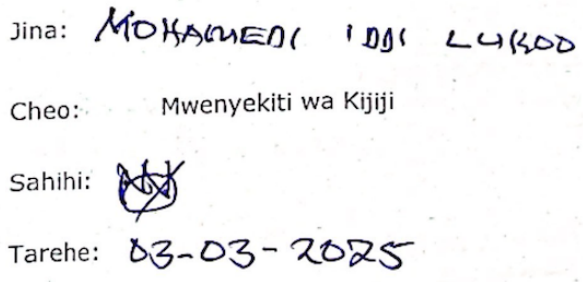 Jina: MOHAMEDI IDDI LUKOO
Cheo: Mwenyekiti wa Kijiji
Sahihi:
Tarehe: 03-03-2025